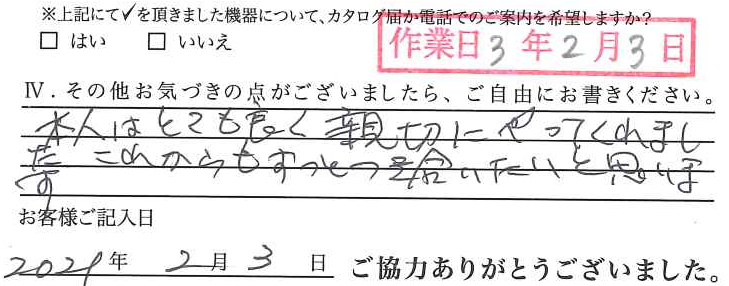 ※上記にて✓を頂きました機器について、カタログ届か電話でのご案内を希望しますか？
□ はい　□ いいえ
作業日3年2月3日
Ⅳ．その他お気づきの点がございましたら、ご自由にお書きください。
本人はとても良く親切にやってくれまし
た これからもずっとつき合いたいと思いま
す
お客様ご記入日
2021年 2月 3日 ご協力ありがとうございました。